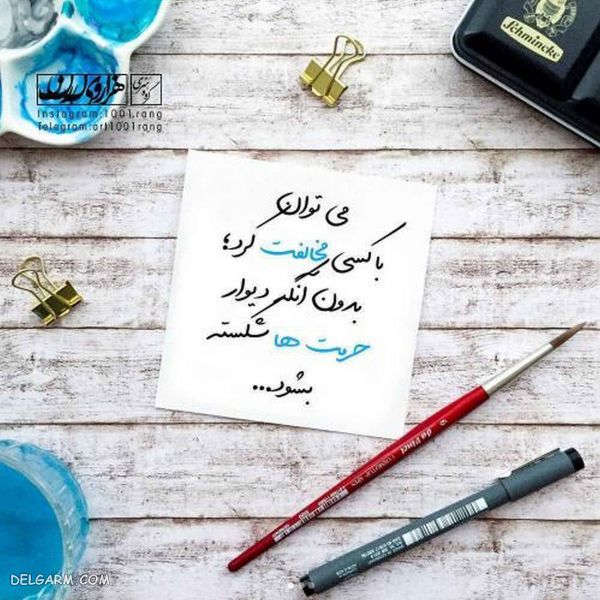 Schmincke
گروه هنری هزار و یک رنگ
Instagram:1001.rang
Telegram:art1001.rang
می توان
با کسی مخالفت کرد؛
بدون آنکه دیوار
حرمت ها شکسته
بشود...
da Vinci
DELGARM.COM